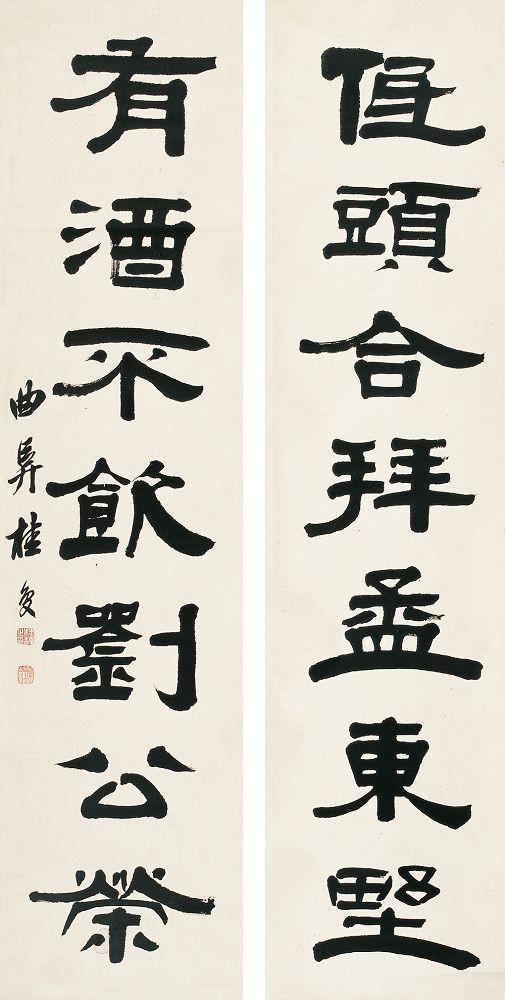 低頭合拜孟東墅
有酒不飲劉公榮
曲阜桂复